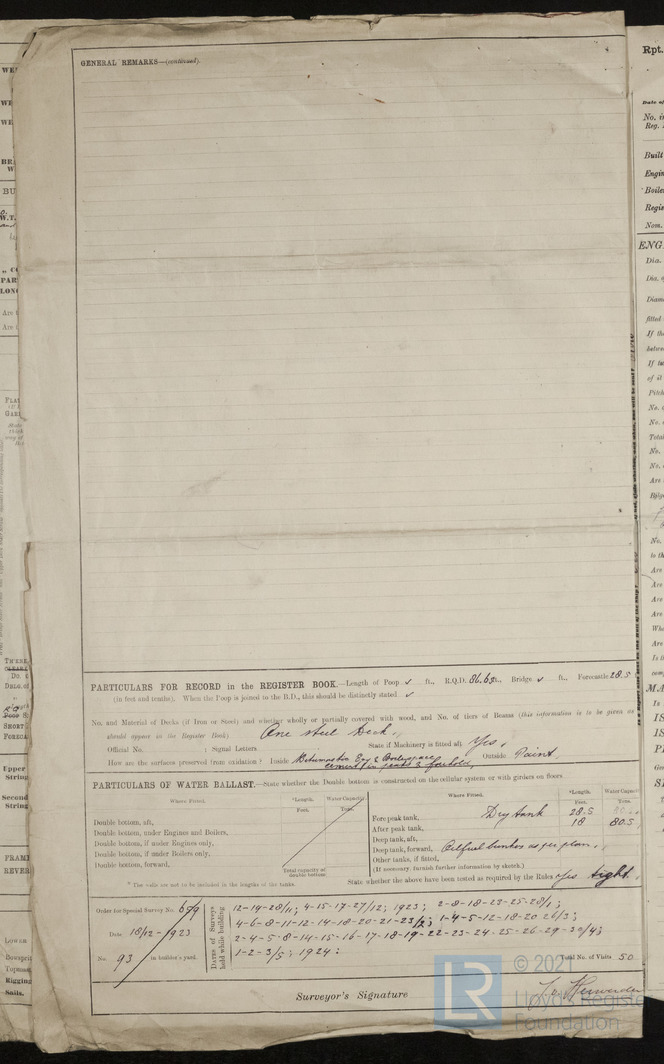 GENERAL REMARKS—(continued).
PARTICULARS FOR RECORD in the REGISTER BOOK.—Length of Poop ✓ ft., R.Q.D. 86.63 ft., Bridge ✓ ft., Forecastle 28.5
(in feet and tenths). When the Poop is joined to the B.D., this should be distinctly stated ✓
No. and Material of Decks (if Iron or Steel) and whether wholly or partially covered with wood, and No. of tiers of Beams (this information is to be given as
should appear in the Register Book) One steel Deck
Official No. ; Signal Letters State if Machinery is fitted aft Yes,
How are the surfaces preserved from oxidation? Inside Bitumastic Eng & Boilerspace Outside Paint.
cement in peaks &
PARTICULARS OF WATER BALLAST.—State whether the Double bottom is constructed on the cellular system or with girders on floors
Where Fitted. *Length. Water Capacity
Feet. Tons.
Double bottom, aft,
Double bottom, under Engines and Boilers,
Double bottom, if under Engines only,
Double bottom, if under Boilers only,
Double bottom, forward,
Total capacity of
double bottom
* The wells are not to be included in the lengths of the tanks.
Where Fitted. *Length. Water Capacity
Feet. Tons.
Fore peak tank, Dry tank 28.5
After peak tank, 18 80.5
Deep tank, aft,
Deep tank, forward, Oilfuel bunker as per plan.
Other tanks, if fitted,
(If necessary, furnish further information by sketch.)
State whether the above have been tested as required by the Rules Yes tight.
Order for Special Survey No. 699
Date 18/12-1923
No. 93 in builder's yard.
Dates of Surveys held while building
12-14-28/11; 4-15-17-27/12; 1923; 2-8-18-23-25-28/1;
4-6-8-11-12-14-18-20-21-23/2; 1-4-5-12-18-20 26/3;
2-4-5-8-14-15-16-17-18-19-22-23-24-25-26-29-30/4;
1-2-3/5; 1924:
Total No. of Visits 50
Surveyor's Signature
LR
© 2021
Lloyd's Register
Foundation